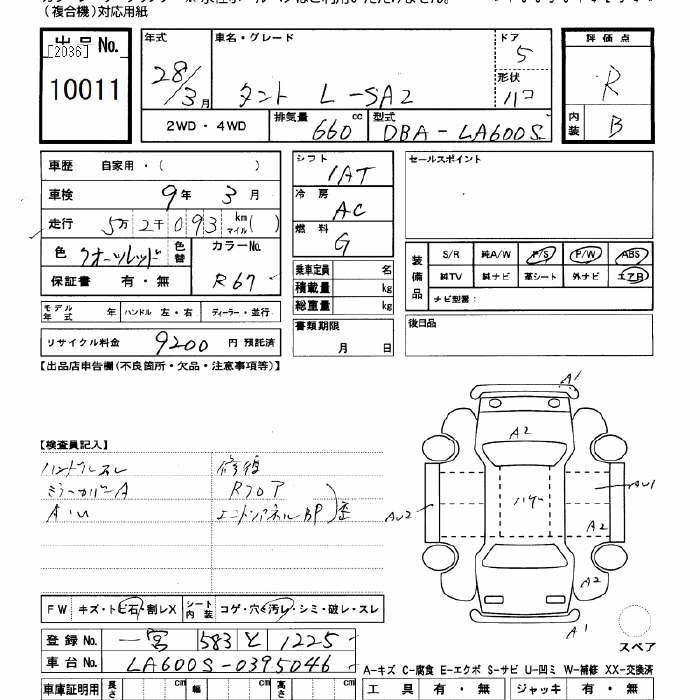 (複合機)対応用紙
出品No.
[2036]
10011
年式
28/3月
車名・グレード
タント L-SA2
ドア
5
形状
ハコ
2WD・4WD
排気量
660 cc
型式
DBA-LA600S
評価点
R
内装
B
車歴 自家用・( )
車検 9年 3月
走行 5万2千093 km マイル( )
色 クオーツレッド 色替
カラーNo.
R67
保証書 有・無
モデル年式 年 ハンドル 左・右 ディーラー・並行
リサイクル料金 9200 円 預託済
シフト
IAT
冷房
AC
燃料
G
乗車定員 名
積載量 kg
総重量 kg
書類期限
月 日
セールスポイント
装備品
S/R 純A/W P/S P/W ABS
純TV 純ナビ 革シート 外ナビ エアB
ナビ型番:
後日品
【出品店申告欄(不良箇所・欠品・注意事項等)】
【検査員記入】
ハンドルスレ
ミラーカバーA
A・U
修復
Rフロア
エンドパネル BP
歪
A1
A2
ハゲー
AU1
AU2
A2
A2
A1
スペア
FW キズ・トビ石・割レX シート内装 コゲ・穴・汚レ・シミ・破レ・スレ
登録No. 一宮 583 と 1225
車台No. LA600S-0395046
A-キズ C-腐食 E-エクボ S-サビ U-凹ミ W-補修 XX-交換済
車庫証明用 長さ cm 幅 cm 高さ cm
工具 有・無 ジャッキ 有・無